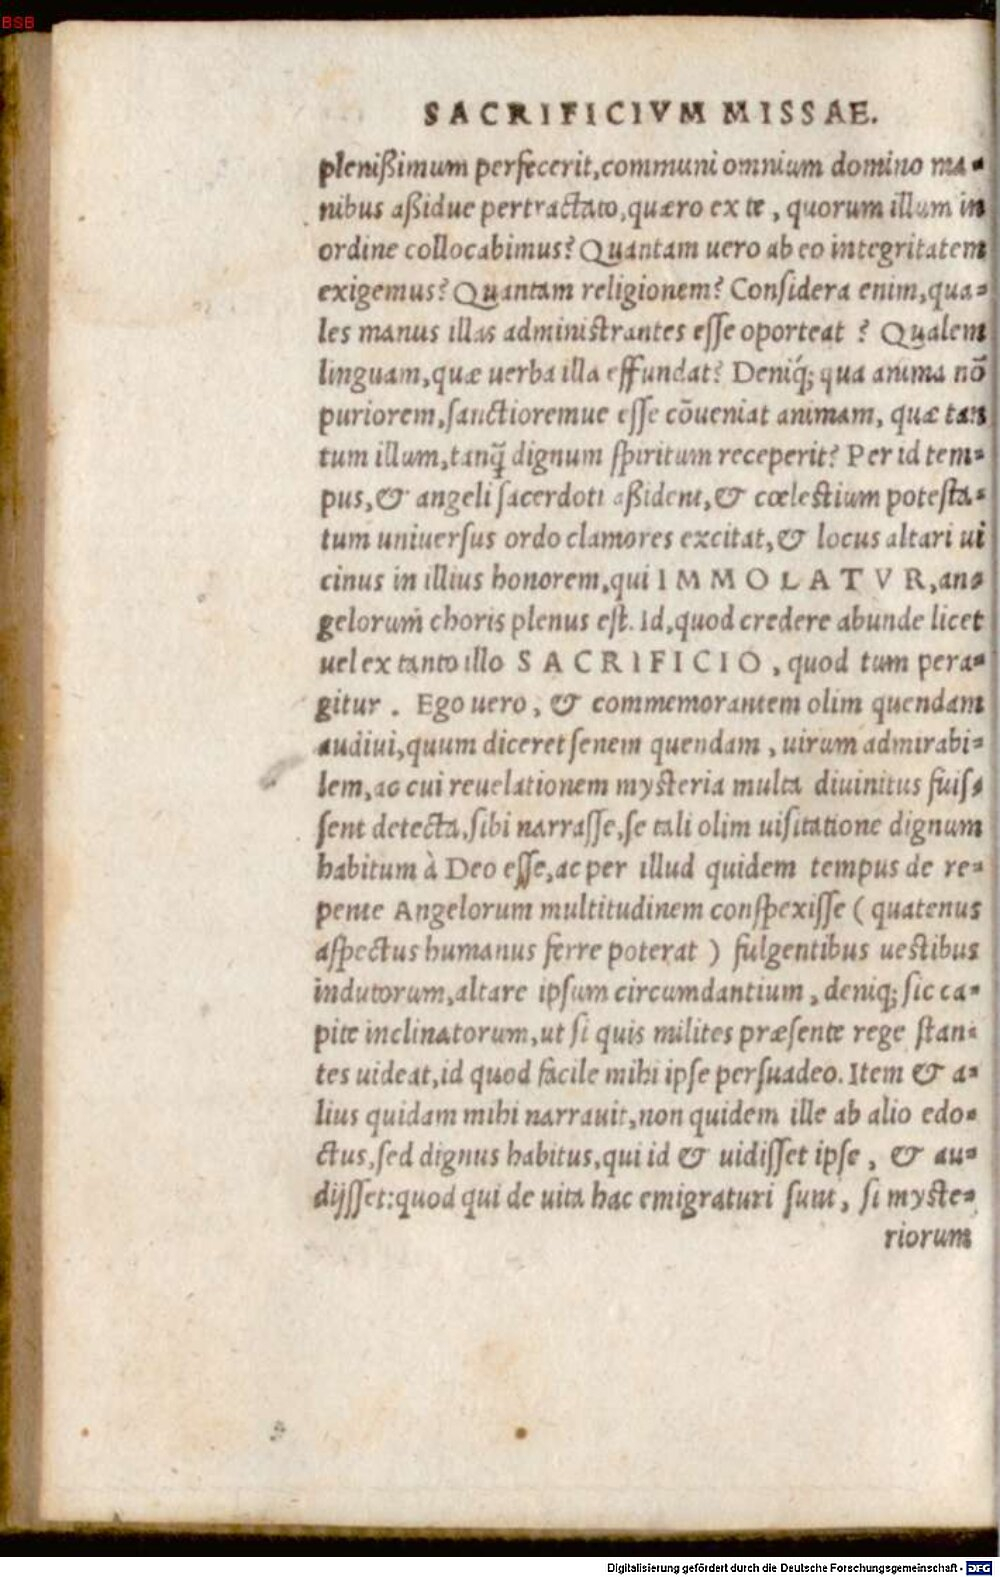 BSB
SACRIFICIVM MISSAE.
pleniſsimum perfecerit, communi omnium domino ma-
nibus aſsidue pertractato, quæro ex te, quorum illum in
ordine collocabimus? Quantam uero ab eo integritatem
exigemus? Quantam religionem? Conſidera enim, qua-
les manus illas adminiſtrantes eſſe oporteat ? Qualem
linguam, quæ uerba illa effundat? Deniq́; qua anima nõ
puriorem, ſanctioremue eſſe cõueniat animam, quæ tan
tum illum, tanq̃ dignum ſpiritum receperit? Per id tem-
pus, & angeli ſacerdoti aſsident, & cœleſtium poteſta-
tum uniuerſus ordo clamores excitat, & locus altari ui
cinus in illius honorem, qui IMMOLATVR, an-
gelorum choris plenus eſt. Id, quod credere abunde licet
uel ex tanto illo SACRIFICIO, quod tum pera-
gitur. Ego uero, & commemorantem olim quendam
audiui, quum diceret ſenem quendam, uirum admirabi-
lem, ac cui reuelationem myſteria multa diuinitus fuiſ-
ſent detecta, ſibi narraſſe, ſe tali olim uiſitatione dignum
habitum à Deo eſſe, ac per illud quidem tempus de re-
pente Angelorum multitudinem conſpexiſſe ( quatenus
aſpectus humanus ferre poterat ) fulgentibus ueſtibus
indutorum, altare ipſum circumdantium, deniq; ſic ca-
pite inclinatorum, ut ſi quis milites præſente rege ſtan-
tes uideat, id quod facile mihi ipſe perſuadeo. Item & a-
lius quidam mihi narrauit, non quidem ille ab alio edo-
ctus, ſed dignus habitus, qui id & uidiſſet ipſe, & au-
dijſſet: quod qui de uita hac emigraturi ſunt, ſi myſte-
riorum
Digitalisierung gefördert durch die Deutsche Forschungsgemeinschaft - DFG